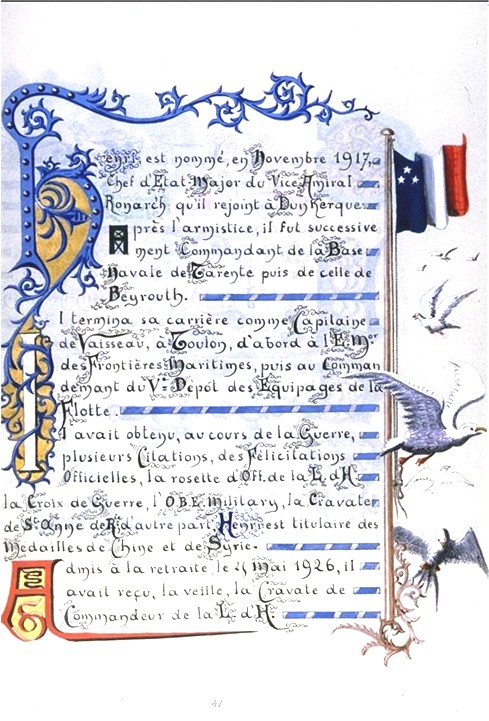 Henri est nommé, en Novembre 1917,
Chef d'Etat-Major du Vice Amiral
Ronarch qu'il rejoint à Dunkerque.
Après l'armistice, il fut successive
ment Commandant de la Base
Navale de Tarente puis de celle de
Beyrouth.
Il termina sa carrière comme Capitaine
de Vaisseau, à Toulon, d'abord à l'E.Mor
des Frontières Maritimes, puis au Comman
demant du Ve Dépôt des Equipages de la
Flotte.
Il avait obtenu, au cours de la Guerre,
plusieurs Citations, des Félicitations
Officielles, la rosette d'Off. de la L. d'H.
la Croix de Guerre, l'O.B.E. Military, la Cravate
de St Anne de R. d'autre part, Henri est titulaire des
Medailles de Chine et de Syrie.
Admis à la retraite le 25 Mai 1926, il
avait reçu, la veille, la Cravate de
Commandeur de la L. d'H.